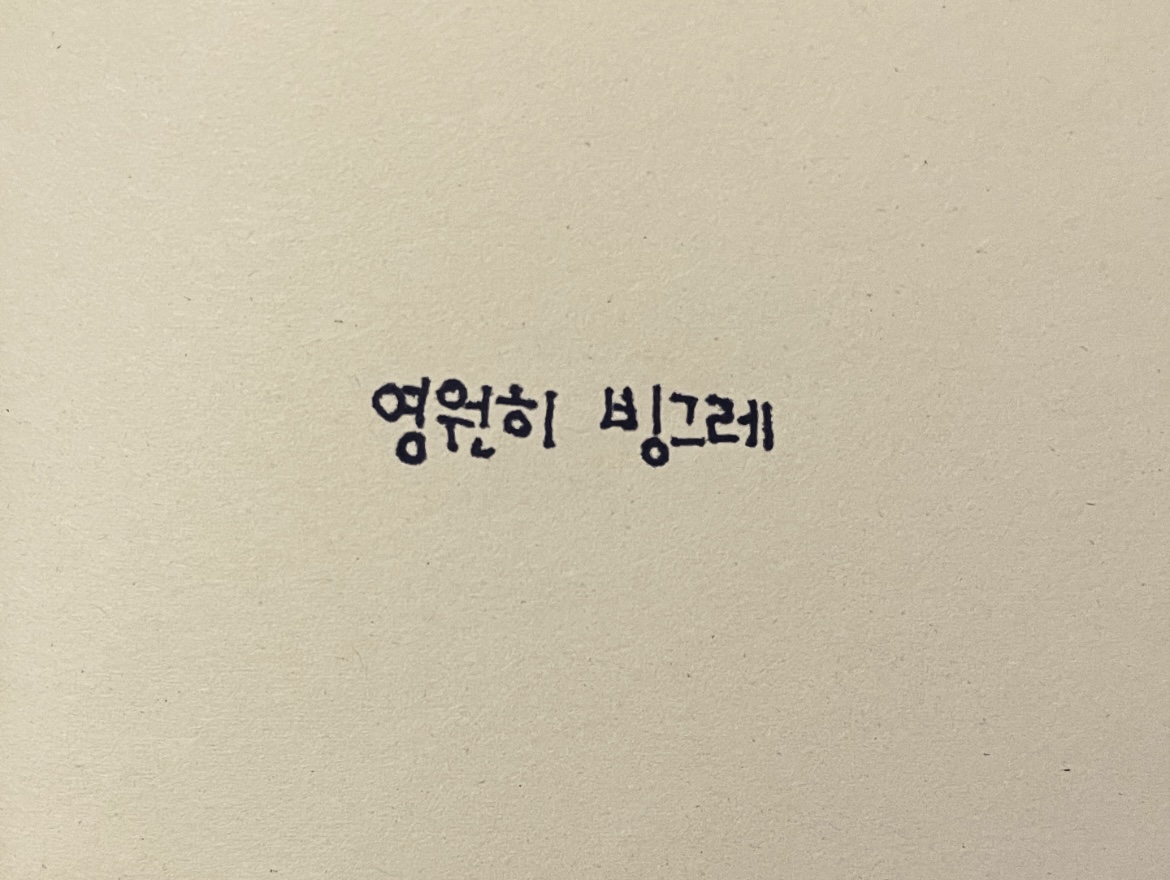 영원히 빙그레